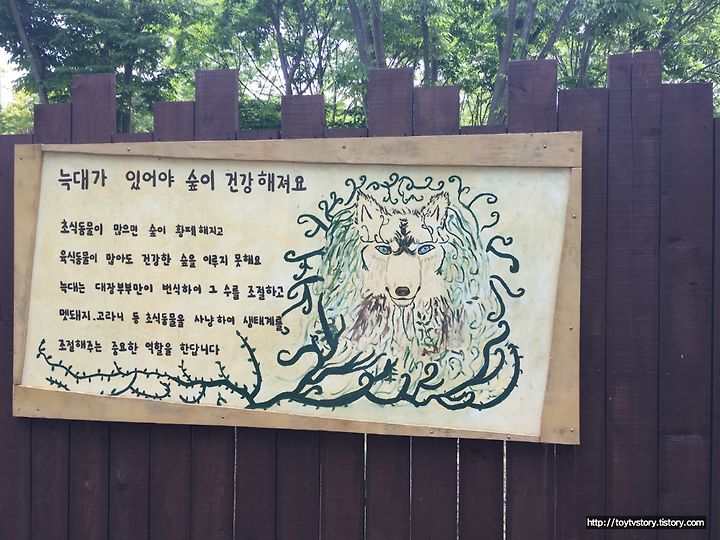 늑대가 있어야 숲이 건강해져요
초식동물이 많으면 숲이 황폐해지고
육식동물이 많아도 건강한 숲을 이루지 못해요
늑대는 대장부부만이 번식하여 그 수를 조절하고
멧돼지.고라니 등 초식동물을 사냥하여 생태계를
조절해주는 중요한 역할을 한답니다
http://toytvstory.tistory.com